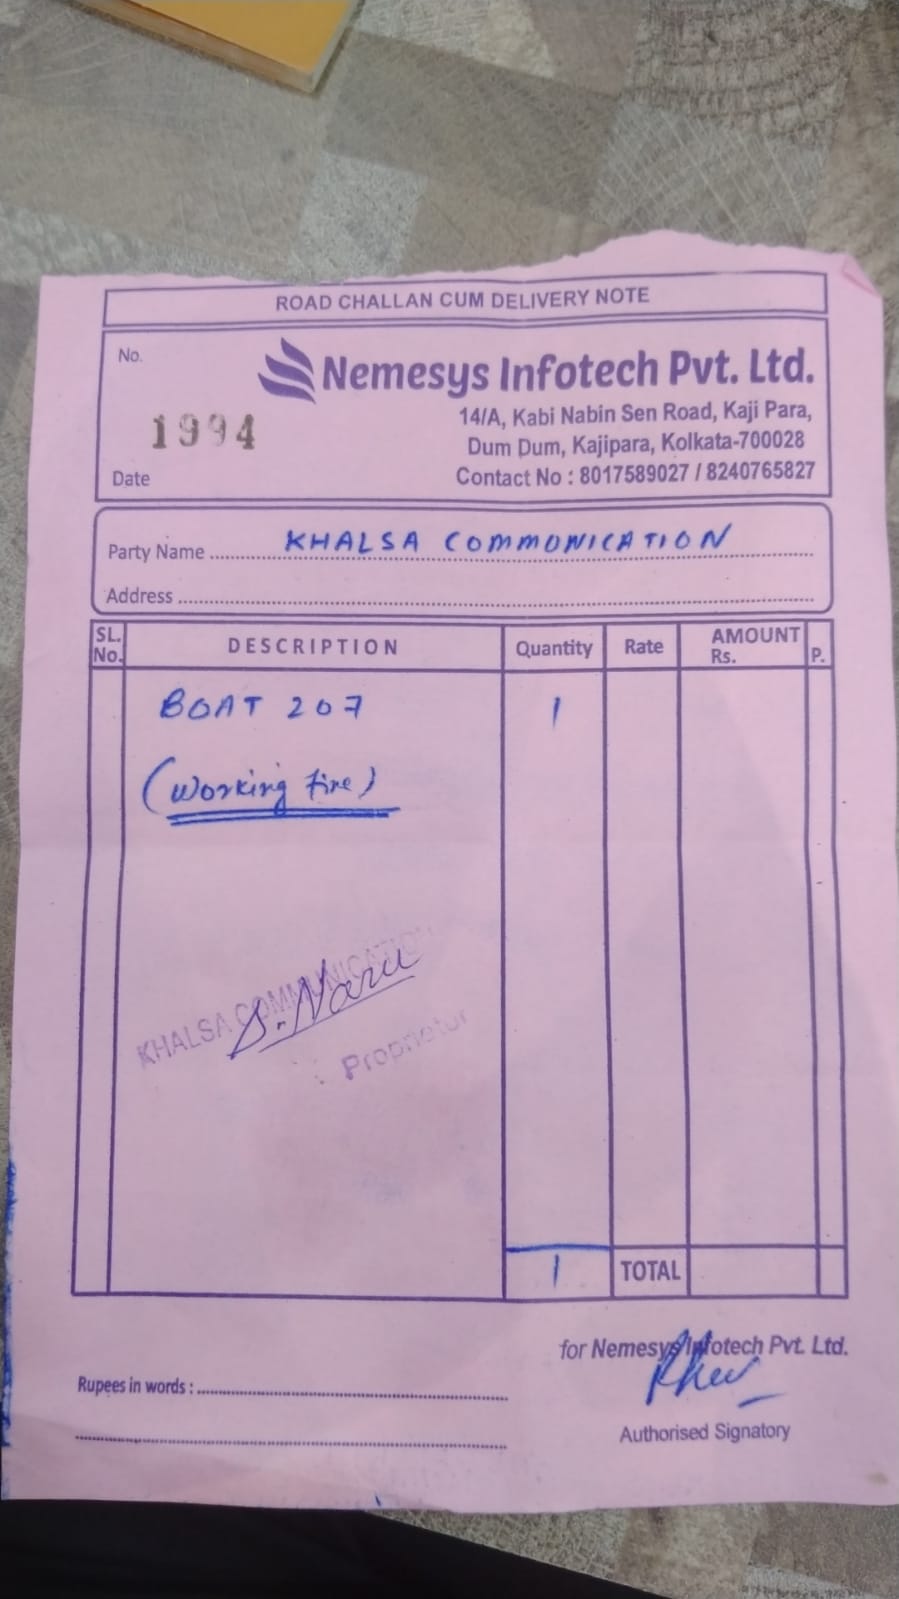 ROAD CHALLAN CUM DELIVERY NOTE
No.
Nemesys Infotech Pvt. Ltd.
1994
14/A, Kabi Nabin Sen Road, Kaji Para,
Dum Dum, Kajipara, Kolkata-700028
Date
Contact No : 8017589027 / 8240765827
Party Name KHALSA COMMONICATION
Address
SL. No. DESCRIPTION Quantity Rate AMOUNT Rs. P.
BOAT 207 1
(Working fine)
KHALSA COMMUNICATION
S. Naru
Proprietor
1 TOTAL
for Nemesys Infotech Pvt. Ltd.
Rupees in words :
Authorised Signatory